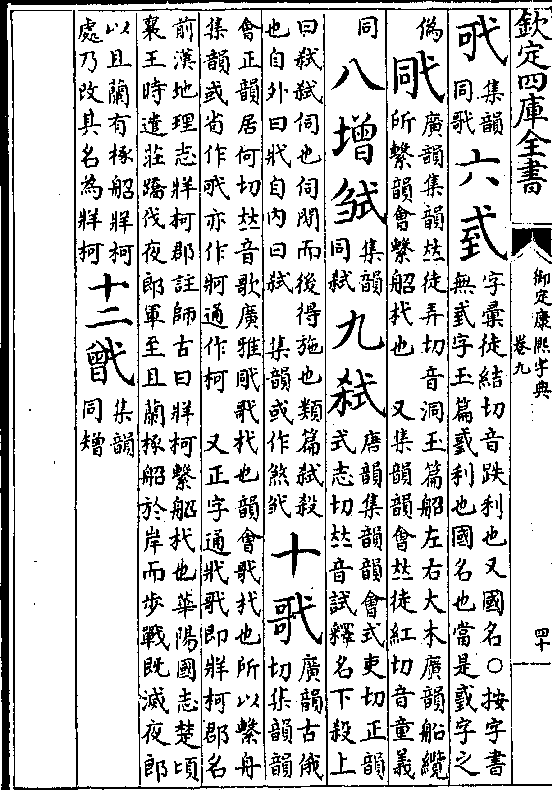 欽定四庫全書
御定康熙字典
卷九
四十
集韻
同㢦
六
字彙徒結切音跌利也又國名○按字書
無字玉篇利也國名也當是字之
偽
㢥
廣韻集韻𠀤徒弄切音洞玉篇船左右大木廣韻船纜
所繫韻會繫船杙也 又集韻韻會𠀤徒紅切音童義
同
八增
集韻
同弑
九弑
唐韻集韻韻會式吏切正韻
式志切𠀤音試釋名下殺上
曰弑弑伺也伺閒而後得施也類篇弑殺
也自外曰戕自内曰弑 集韻或作煞
十㢦
廣韻古俄
切集韻韻
會正韻居何切𠀤音歌廣雅㢥㢦杙也韻會㢦杙也所以繫舟
集韻或省作亦作牁通作柯 又正字通戕㢦即牂柯郡名
前漢地理志牂柯郡註師古曰牂柯繫船杙也華陽國志楚頃
襄王時遣莊蹻伐夜郎軍至且蘭椓船於岸而步戰既滅夜郎
以且蘭有椓船牂柯
處乃改其名為牂柯
十二
集韻
同矰